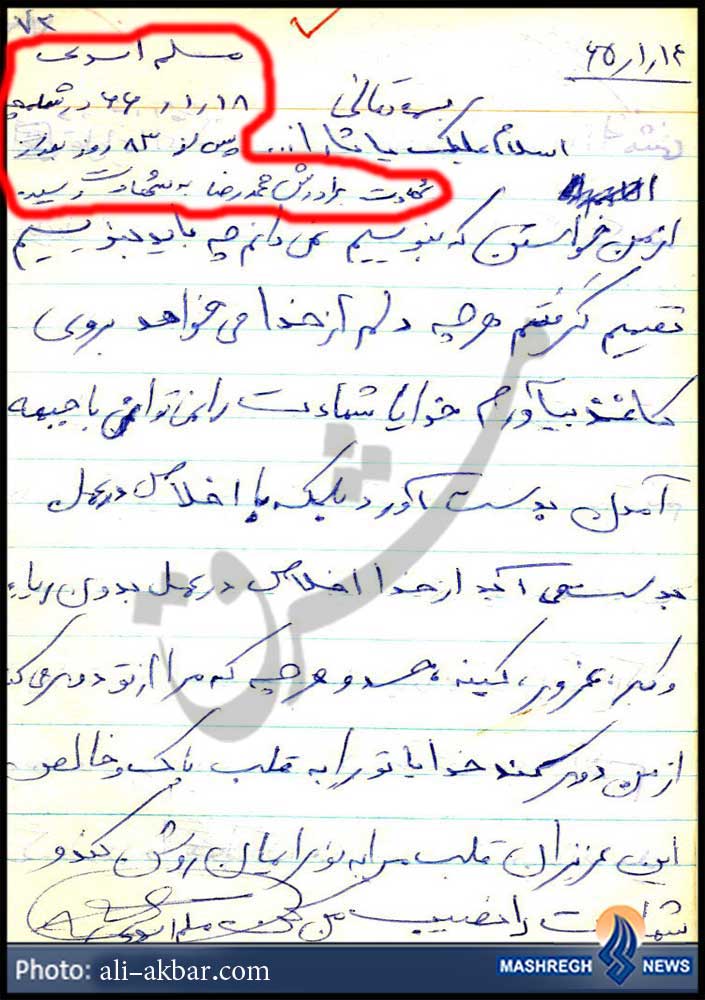 ۷۲
مسلم اسدی
۶۵/۱/۱۴
۶۶/۱/۱۸ در شلمچه
بسمه تعالی
پس از ۸۳ روز بعد از
اسلام علیک یا ثارا...
شهادت برادرش محمدرضا به شهادت رسید
از من خواستن که بنویسم نمی دانم چه باید بنویسیم
تصیم گرفتم هر چه دلم از خدا می خواهد بروی
کاغذ بیآورم خدایا شهادت را نمی توان با جبهه
آمدن بدست آورد بلکه با اخلاص در عمل
بدست می آید از خدا اخلاص در عمل بدون ریاء
و کبر، غرور، کینه، حسد و هر چه که مرا از تو دور می کند
از من دور کند خدایا تو را به قلب پاک و خالص
این عزیزان قلب مرا به نور ایمان روشن کند و
شهادت را نصیب من مسلم اسدی
مشرق
Photo: ali-akbar.com
MASHREGH NEWS